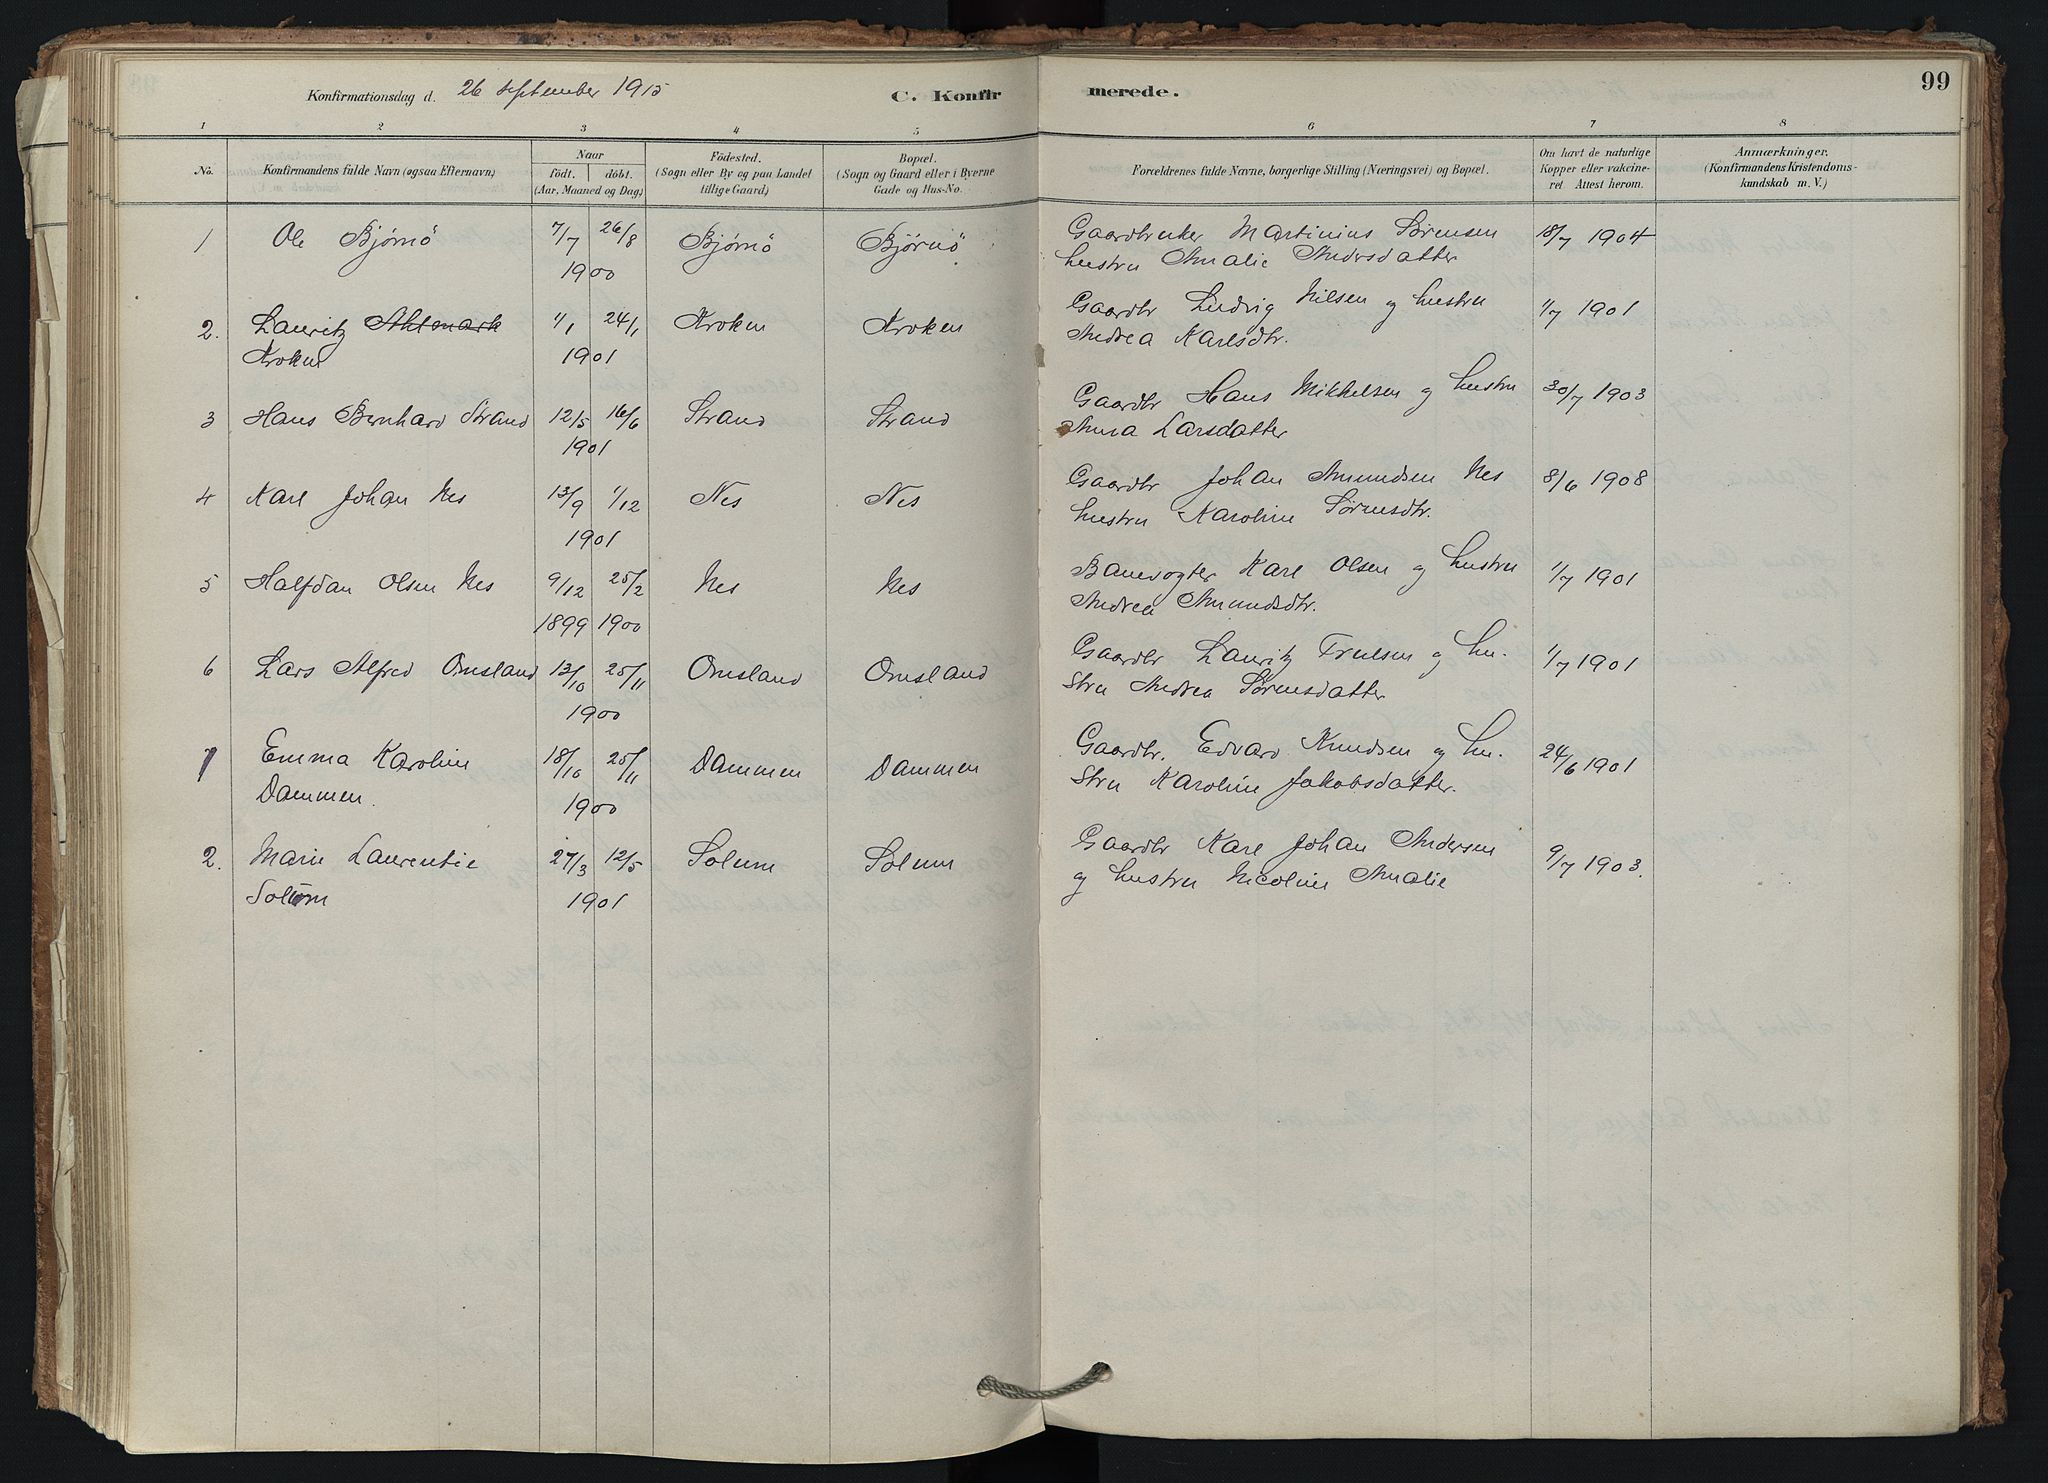 99
Konfirmationsdag d. 26 september 1915 C. Konfirmerede.
1 2 3 4 5 6 7 8
No. Konfirmandens fulde Navn (ogsaa Efternavn) Naar født. døbt. (Aar, Maaned og Dag) Fødested. (Sogn eller By og paa Landet tillige Gaard) Bopæl. (Sogn og Gaard eller i Byerne Gade og Hus-No. Forældrenes fulde Navne, borgerlige Stilling (Næringsvei) og Bopæl. Om havt de naturlige Kopper eller vakcineret Attest herom. Anmærkninger. (Konfirmandens Kristendomskundskab m. V.)
1 Ole Bjørnö 7/7 26/8 Bjørnö Bjørnö Gaardbruker Martinius Sørensen 18/7 1904
1900 hustru Amalie Andersdatter
2. Lauritz Ahlmark 1/1 24/1 Kroken Kroken Gaardbr Ludvig Nilsen og hustru 1/7 1901
Kroken 1901 Andrea Karlsdtr.
3 Hans Bernhard Strand 12/5 16/6 Strand Strand Gaardbr Hans Mikkelsen og hustru 30/7 1903
1901 Anna Larsdatter
4 Karl Johan Nes 13/9 1/12 Nes Nes Gaardbr Johan Amundsen Nes 8/6 1908
1901 hustru Karoline Sørensdtr.
5 Halfdan Olsen Nes 9/12 25/2 Nes Nes Banevogter Karl Olsen og hustru 1/7 1901
1899 1900 Andrea Amundsdtr.
6 Lars Alfred Omsland 13/10 25/11 Omsland Omsland Gaardbr Lauritz Trulsen og hu- 1/7 1901
1900 stru Andrea Sørensdatter
1 Emma Karoline 18/10 25/11 Dammen Dammen Gaardbr. Edvard Knudsen og hu- 24/6 1901
Dammen. 1900 stru Karoline Jakobsdatter.
2. Marie Laurentie 27/3 12/5 Solum Solum Gaardbr Karl Johan Andersen 9/7 1903.
Solum 1901 og hustru Nicoline Amalie